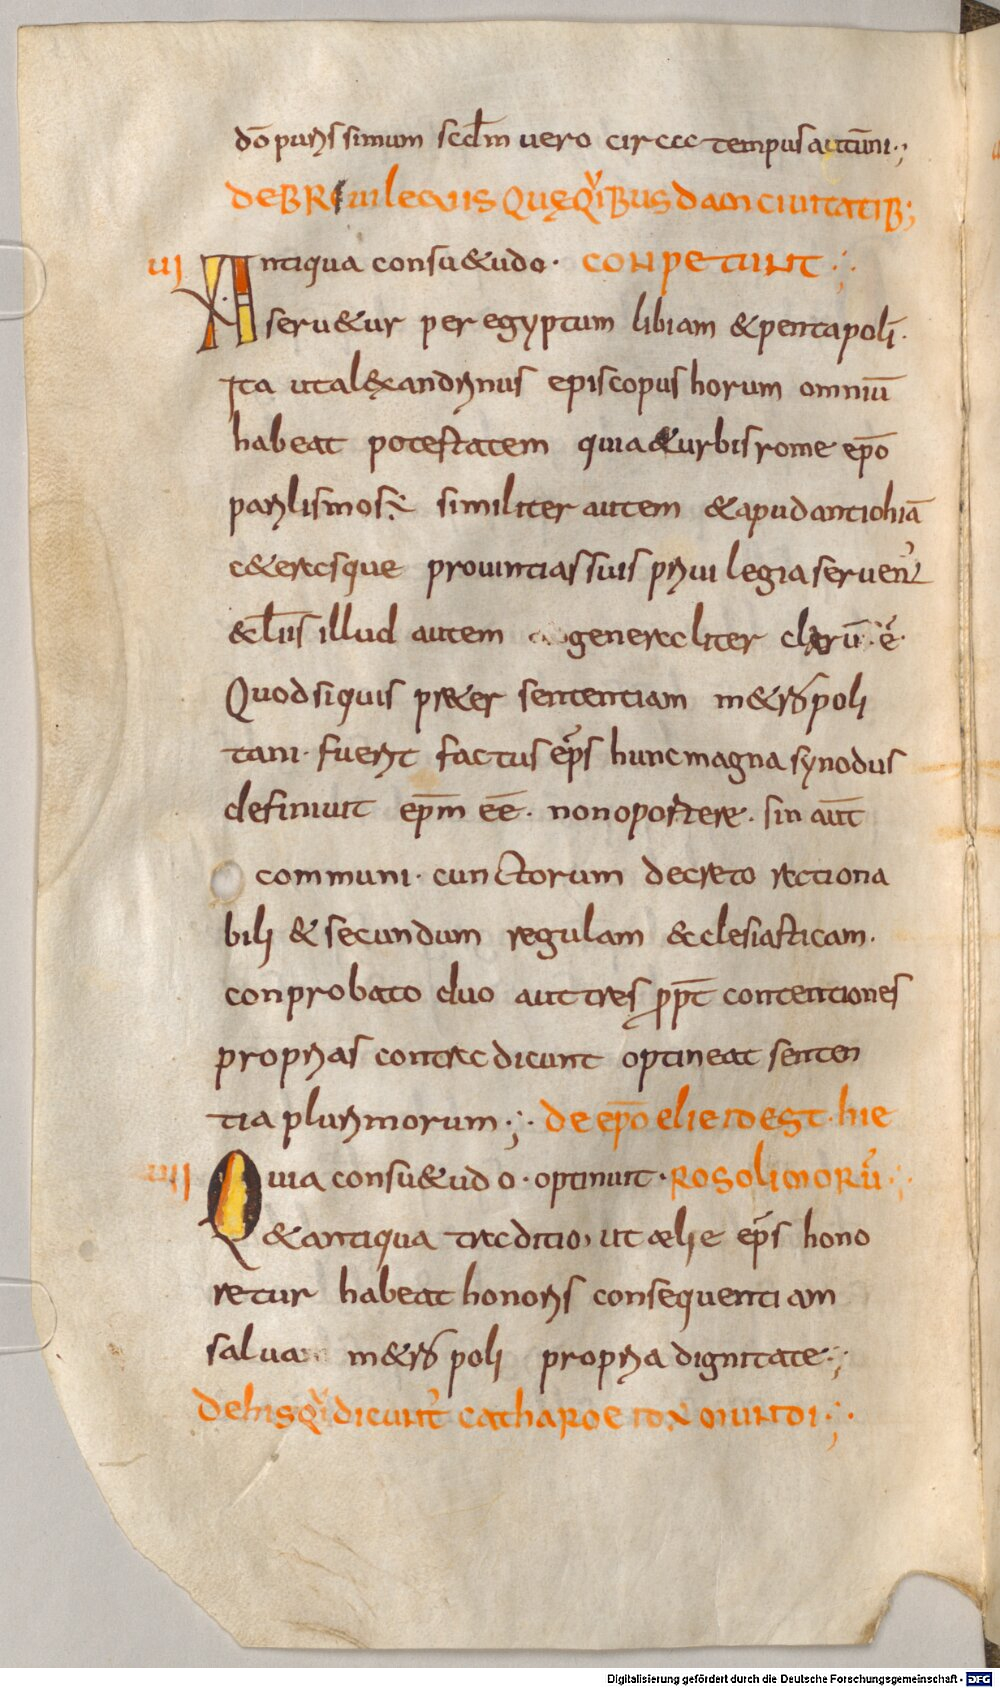 dō purissimum scdm̄ uero circa tempus autūni.;
DE PRIUILEGIIS QUĘ QͥBUSDAM CIUITATIB;
UI Antiqua consu&udo· CONPETUNT;
seru&ur per egyptum libiam & pentapolī·
Ita ut alexandrinus episcopus horum omniū
habeat potestatem quia & urbis rome ep̄o
similiter autem & apud antiohiā
c&erasque prouintias suis priuilegia seruent᷑
illud autem generaliter clarū ē·
Quod siquis pr&er sententiam m&ropoli
tani· fuerit factus ep̄s hunc magna synodus
definiuit ep̄m eē· non oportere· sin aut̄
communi· cunctorum decreto rationa
bili & secundum regulam &clesiasticam·
conprobato duo aut tres ppt̄ contentiones
proprias contradicunt optineat senten
tia plurimorum·; DE EP̄O ELIE ID EST· HIE
UII Quia consu&udo· optinuit· ROSOLIMORŪ·;
& antiqua traditio, ut ælie ep̄s hono
retur habeat honoris consequentiam
salua m&ropoli propria dignitate·;
DE HIS QͥI DICUNT᷑ CATHAROE ID Ē MUNDI·;